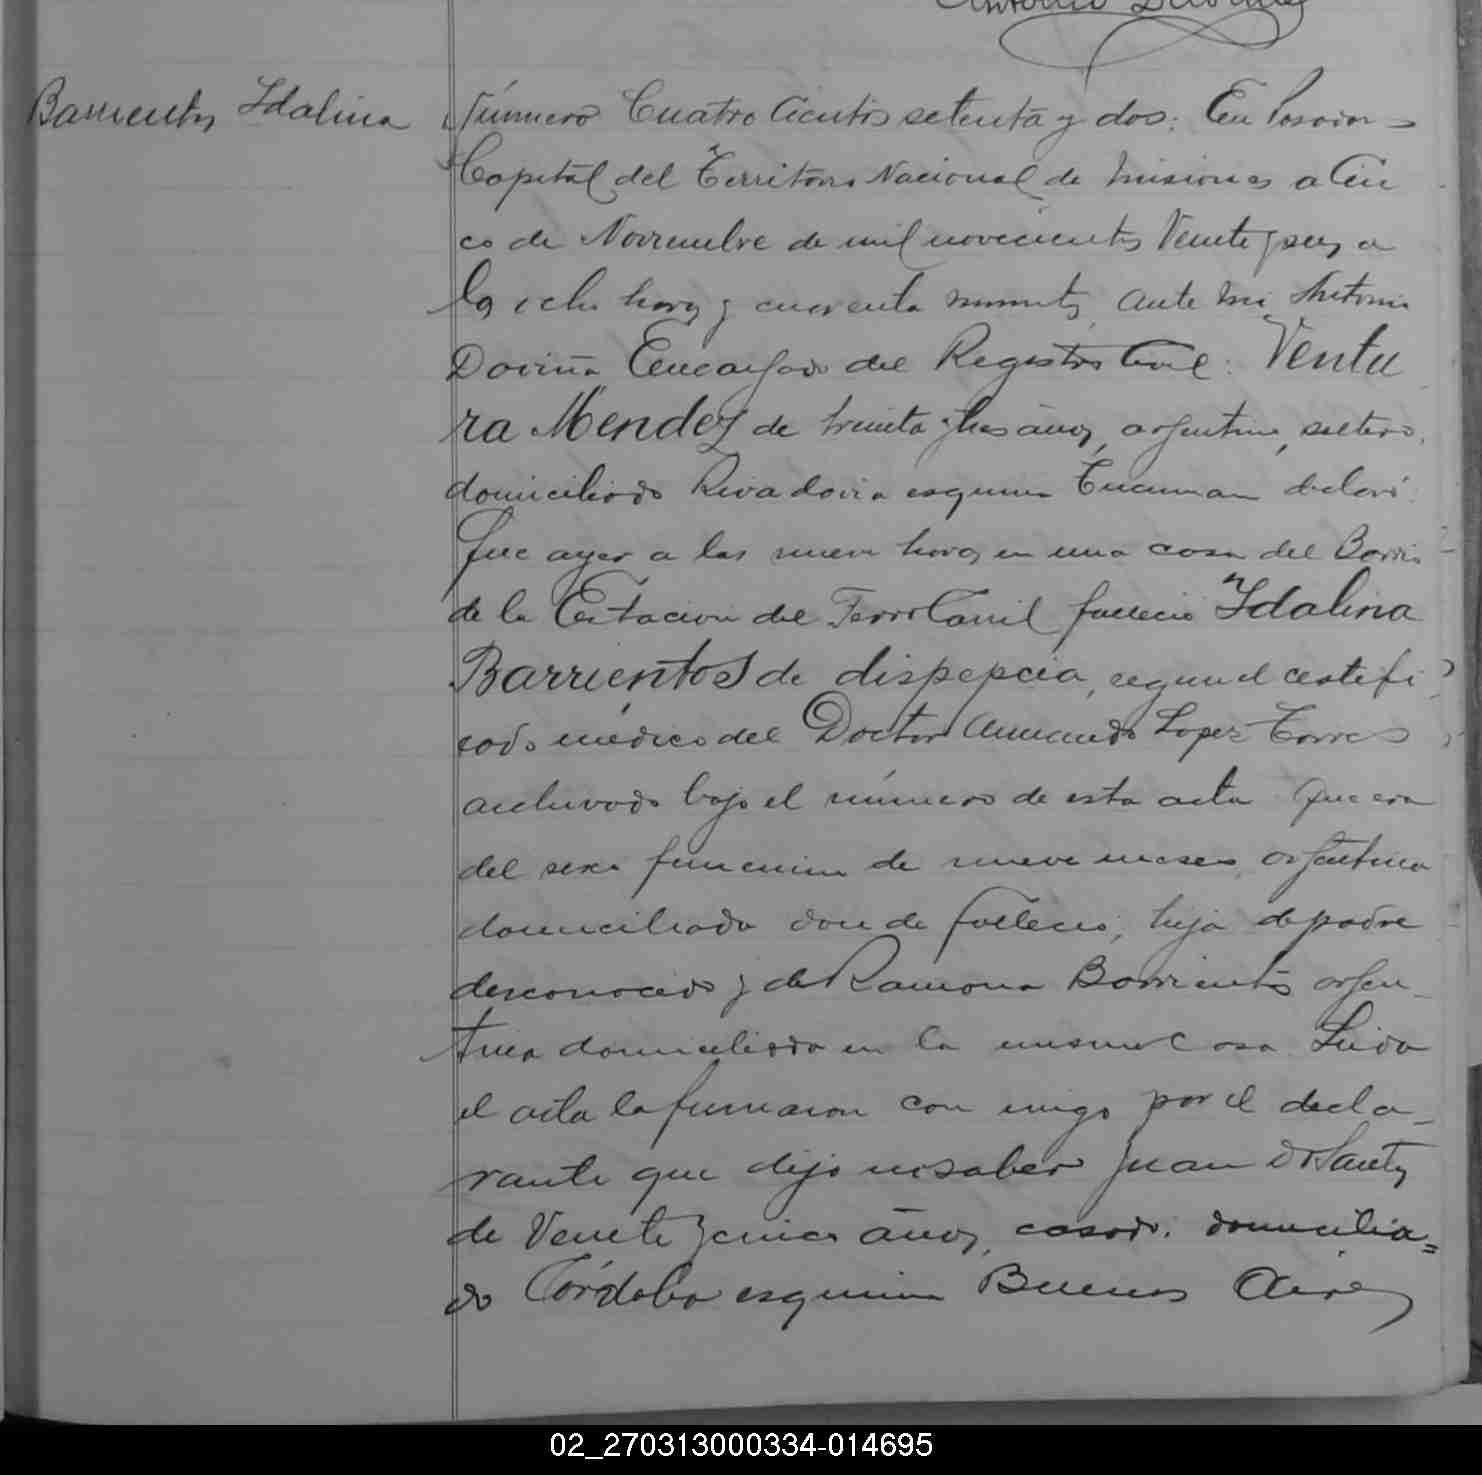 Antonio Doviña
Barrientos Ydalina
Número Cuatro Cientos setenta y dos: En Posadas
Capital del Territorio Nacional de Misiones a Cin
co de Noviembre de mil novecientos Veinte y seis a
las ocho horas y cuarenta minutos, ante mi Antonio
Doviña Encargado del Registro Civil: Ventu
ra Mendez de treinta y tres años, argentino, soltero,
domiciliado Rivadavia esquina Tucuman declaró:
Que ayer a las nueve horas en una casa del Barrio
de la Estacion del Ferro Carril fallecio Ydalina
Barrientos de dispepcia, segun el certifi
cado médico del Doctor Armando Lopez Torres
archivado bajo el número de esta acta Que era
del sexo femenino de nueve meses, argentina
domiciliada donde fallecio, hija de padre
desconocido y de Ramona Barrientos argen-
tina domiciliada en la misma Casa. Leida
el acta la firmaron con migo por el decla-
rante que dijo no saber Juan D Santos
de Veinte y cinco años, casado, domicilia=
do Córdoba esquina Buenos Aires
02_270313000334-014695